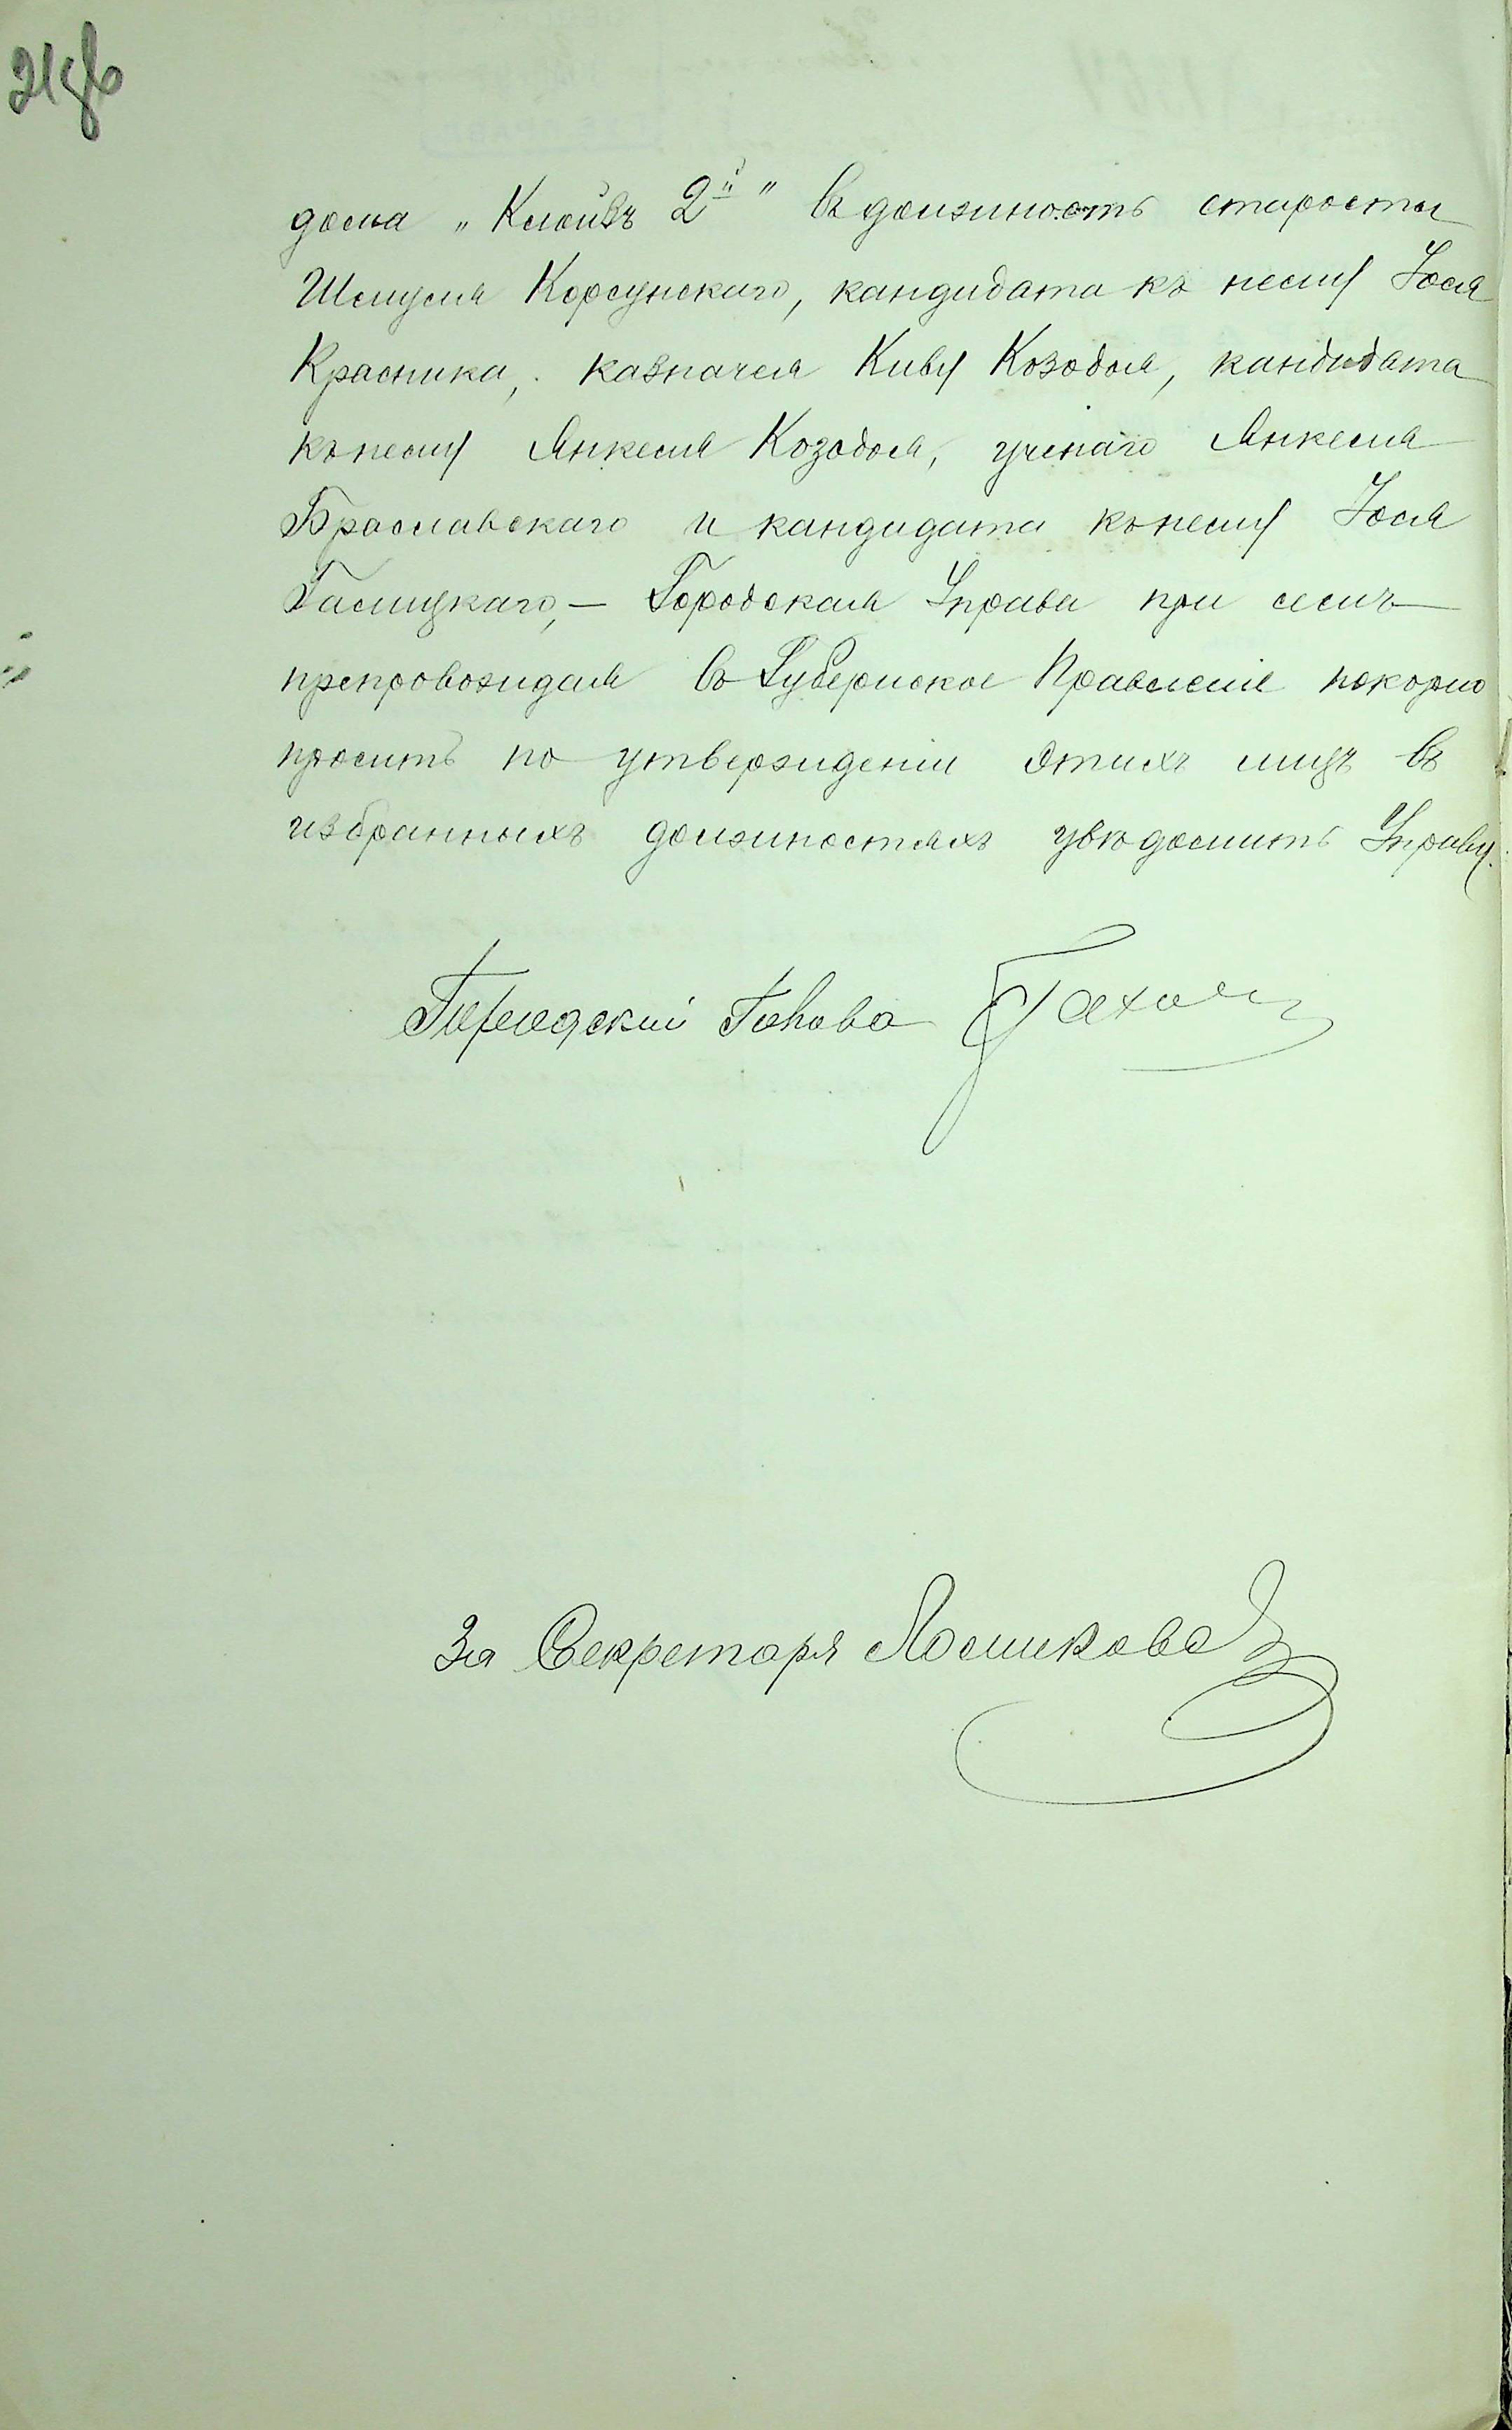 21 об
дома „Клойзъ 2й" въ должность старосты
Шмуля Корсунскаго, кандидата къ нему Іося
Красника, казначея Киву Козодоя, кандидата
къ нему Янкеля Козодоя, ученаго Янкеля
Браславскаго и кандидата къ нему Іося
Галицкаго, — Городская Управа при семъ
препровождая въ Губернское Правленіе покорно
проситъ по утвержденіи этихъ лицъ въ
избранныхъ должностяхъ увѣдомить Управу.
Городской Голова
За Секретаря